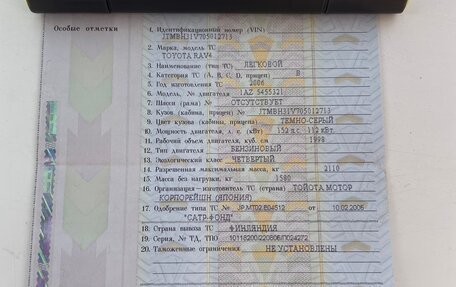 Особые отметки
1. Идентификационный номер (VIN)
JTMBH31V705012713
2. Марка, модель ТС
TOYOTA RAV4
3. Наименование (тип ТС) ЛЕГКОВОЙ
4. Категория ТС (А, В, С, D, прицеп) B
5. Год изготовления ТС 2006
6. Модель, № двигателя 1AZ 5455321
7. Шасси (рама) № ОТСУТСТВУЕТ
8. Кузов (кабина, прицеп) № JTMBH31V705012713
9. Цвет кузова (кабины, прицепа) ТЕМНО-СЕРЫЙ
10. Мощность двигателя, л. с. (кВт) 152 л.с. 112 кВт.
11. Рабочий объем двигателя, куб. см 1998
12. Тип двигателя БЕНЗИНОВЫЙ
13. Экологический класс ЧЕТВЕРТЫЙ
14. Разрешенная максимальная масса, кг 2110
15. Масса без нагрузки, кг 1580
16. Организация — изготовитель ТС (страна) ТОЙОТА МОТОР
КОРПОРЕЙШН (ЯПОНИЯ)
17. Одобрение типа ТС № JP.MT02.E04512 от 10.02.2006
"САТР-ФОНД"
18. Страна вывоза ТС ФИНЛЯНДИЯ
19. Серия, № ТД, ТПО 10118200/220806/П024272
20. Таможенные ограничения НЕ УСТАНОВЛЕНЫ